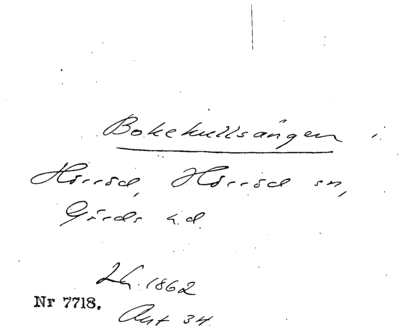 Bokekullsängen i
Hörröd, Hörröd sn,
Gärds hd.
Lh. 1862
Nr 7718.
Akt 34